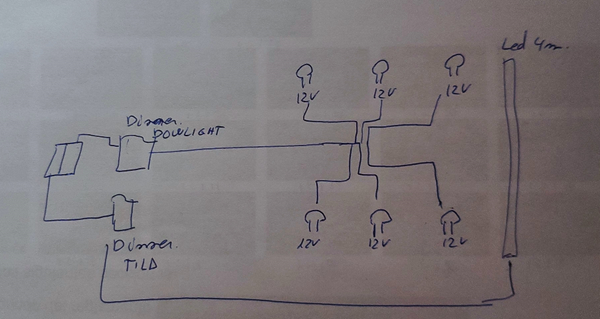 Led 4m.
12V
12V
12V
Dimmer.
DOWLIGHT
12V
12V
12V
Dimmer.
TILD